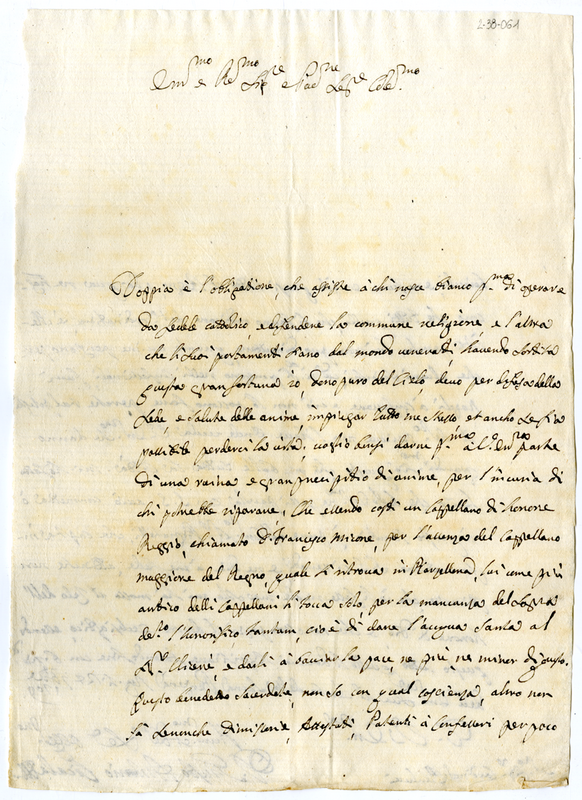 2-38-061
Em.mo e Re.mo Sig.re e Pad.ne Col.mo
Doppia è l'obligatione, che assiste à chi nasce bianco p.mo di operare
da fedele cattolico, e difendere la commune religione, e l'altra
che li suoi portamenti siano dal mondo venerati, havendo sortita
questa gran fortuna io, dono puro del Cielo, devo per difesa della
fede, e salute delle anime, impiegar tutto me stesso, et ancho se sia
possibile perderci la vita; voglio dunq;
di una ruina, e gran precipitio di anime, per l'incuria di
chi potrebbe riparare, che essendo costì un Cappellano di honore
Reggio, chiamato D. Francesco Mirone, per l'asenza del Cappellano
maggiore del Regno, quale si ritrova in si come più
antico delli Cappellani li tocca solo, per la mancanza del sopra
de.to l'honorifico tantum, cioè di dare l'acqua santa al
Vicerè, e darli à baciar la pace, ne più, ne minor di questo.
Questo benedetto sacerdote, non so con qual coscienza, altro non
fà dimisorie, Attestati, Patenti à Confessori per poco